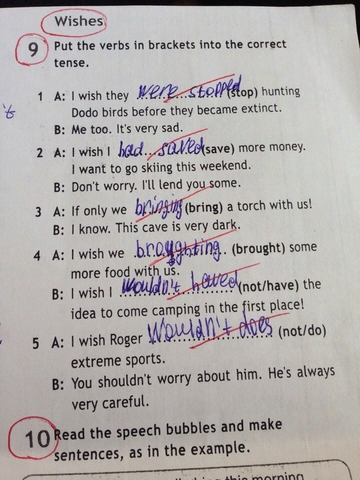 Wishes
9 Put the verbs in brackets into the correct
tense.
1 A: I wish they were stopped (stop) hunting
Dodo birds before they became extinct.
't
B: Me too. It's very sad.
2 A: I wish I had saved (save) more money.
I want to go skiing this weekend.
B: Don't worry. I'll lend you some.
3 A: If only we bringing (bring) a torch with us!
B: I know. This cave is very dark.
4 A: I wish we broughting (brought) some
more food with us.
B: I wish I wouldn't haved (not/have) the
idea to come camping in the first place!
5 A: I wish Roger wouldn't does (not/do)
extreme sports.
B: You shouldn't worry about him. He's always
very careful.
10 Read the speech bubbles and make
sentences, as in the example.
this morning